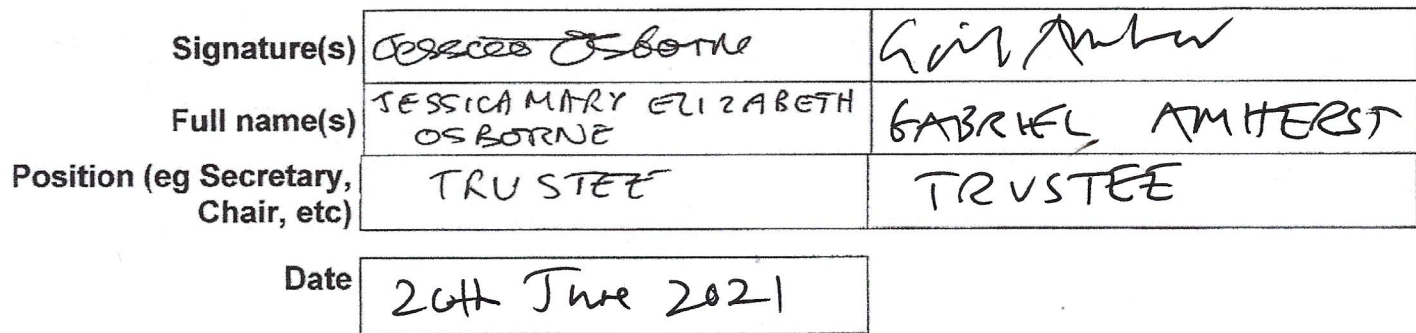 Signature(s) Jessica Osborne
Full name(s) JESSICA MARY ELIZABETH OSBORNE GABRIEL AMHERST
Position (eg Secretary, Chair, etc) TRUSTEE TRUSTEE
Date June 2021